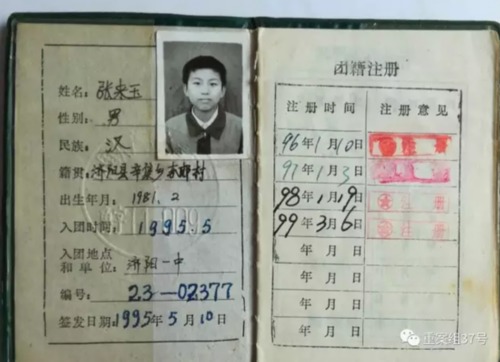 姓名: 张荣玉
性别: 男
民族: 汉
籍贯: 济阳县辛集乡
出生年月: 1981.2
入团时间: 1995.5
入团地点
和单位: 济阳一中
编号: 23—02377
签发日期: 1995年5月10日
团籍注册
注册时间 注册意见
96年1月10日 注册
97年1月3日
98年1月19日 注册
99年3月6日 注册
年 月 日
年 月 日
年 月 日
年 月 日
重案组37号